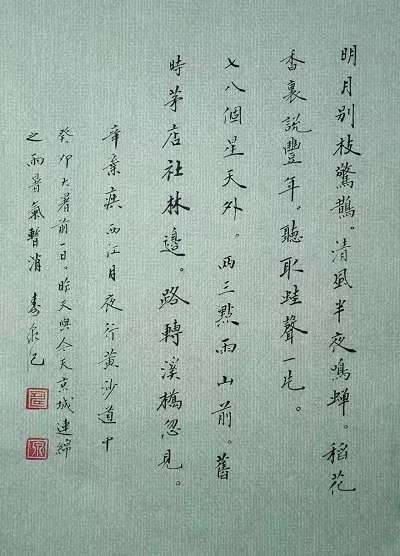 明月别枝驚鵲。清風半夜鳴蟬。稻花
香裏説豐年。聽取蛙聲一片。
七八個星天外。两三點雨山前。舊
時茅店社林邊。路轉溪橋忽見。
辛棄疾西江月夜行黄沙道中
癸卯大暑前一日。昨天與今天京城連綿
之雨暑氣暫消